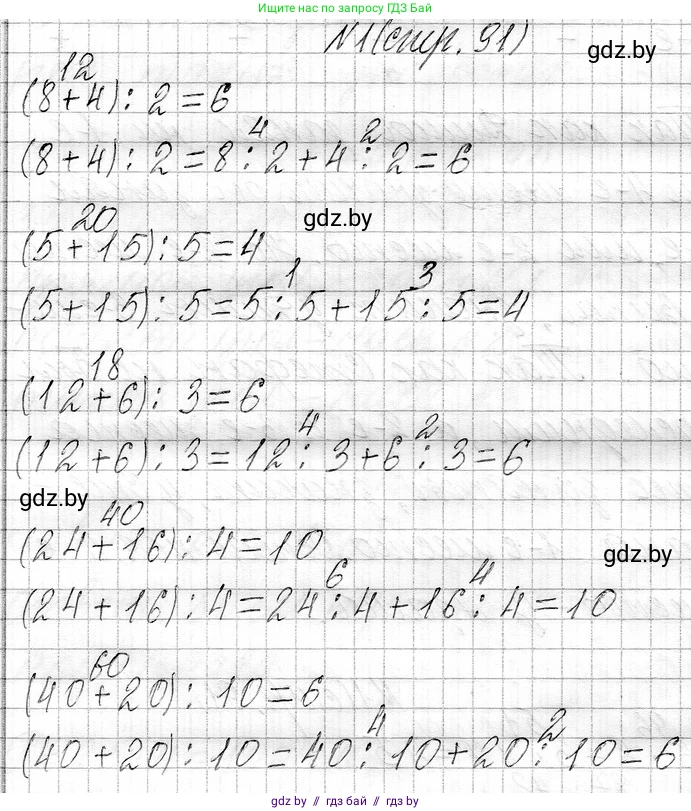 Ищите нас по запросу ГДЗ Бай
N1(стр. 91)
gdz.by
12
(8+4) : 2 = 6
4 2
(8+4) : 2 = 8 : 2 + 4 : 2 = 6
gdz.by
20
(5+15) : 5 = 4
1 3
(5+15) : 5 = 5 : 5 + 15 : 5 = 4
18
(12+6) : 3 = 6
4 2
(12+6) : 3 = 12 : 3 + 6 : 3 = 6
gdz.by
40
(24+16) : 4 = 10
gdz.by
6 4
(24+16) : 4 = 24 : 4 + 16 : 4 = 10
60
(40+20) : 10 = 6
4 2
(40+20) : 10 = 40 : 10 + 20 : 10 = 6
gdz.by // гдз бай // гдз by